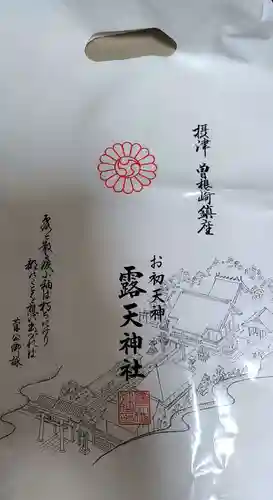 摂津 曽根崎鎮座
お初天神
露天神社
露と散る涙に袖は朽ちにけり
都のことを思い出れば
菅公御歌